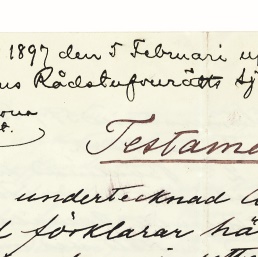 1897 den 5 Februari up
Rådstufvurätts
Testame
undertecknad A
förklarar hä